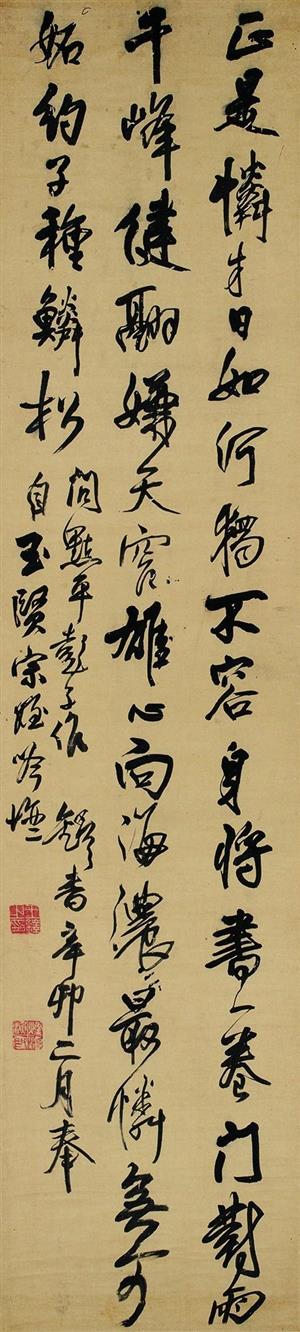 正是憐才日如何獨不容身將書一卷門對兩
千峰健翮嫌天窄雄心向海濃最憐無可
妬約子種鱗松
問 平彭子作 鐸書辛卯二月奉
自玉賢宗姪吟壇